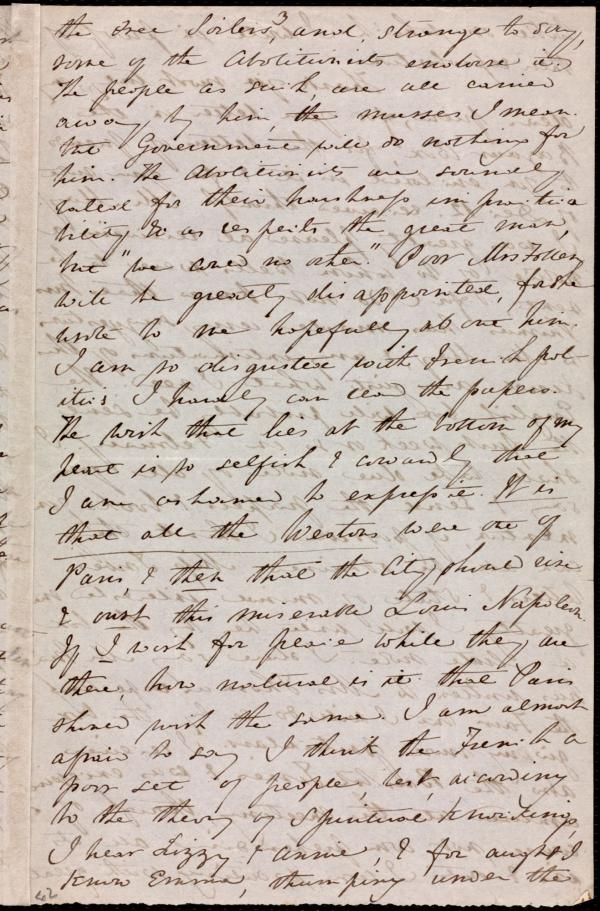 3
the Free Soilers, and, strange to say,
some of the Abolitionists endorse it.
The people as such are all carried
away by him, the masses I mean.
The Government will do nothing for
him. The Abolitionists are soundly
rated for their harshness impractica
bility &c as respects the great man,
but "we can do no other." Poor Mrs Follen
will be greatly disappointed, for she
wrote to me hopefully about him.
I am so disgusted with French pol-
itics I hardly can read the papers.
The wish that lies at the bottom of my
heart is so selfish & cowardly that
I am ashamed to express it. It is
that all the Westons were out of
Paris, & then that the City should rise
& oust this miserable Louis Napoleon.
If I wish for peace while they are
there, how natural is it that Paris
should wish the same. I am almost
afraid to say I think the French a
poor set of people, lest, according
to the theory of Spiritual Knockings,
I hear Lizzy & Annie, & for aught I
know Emma, thumping under the
42